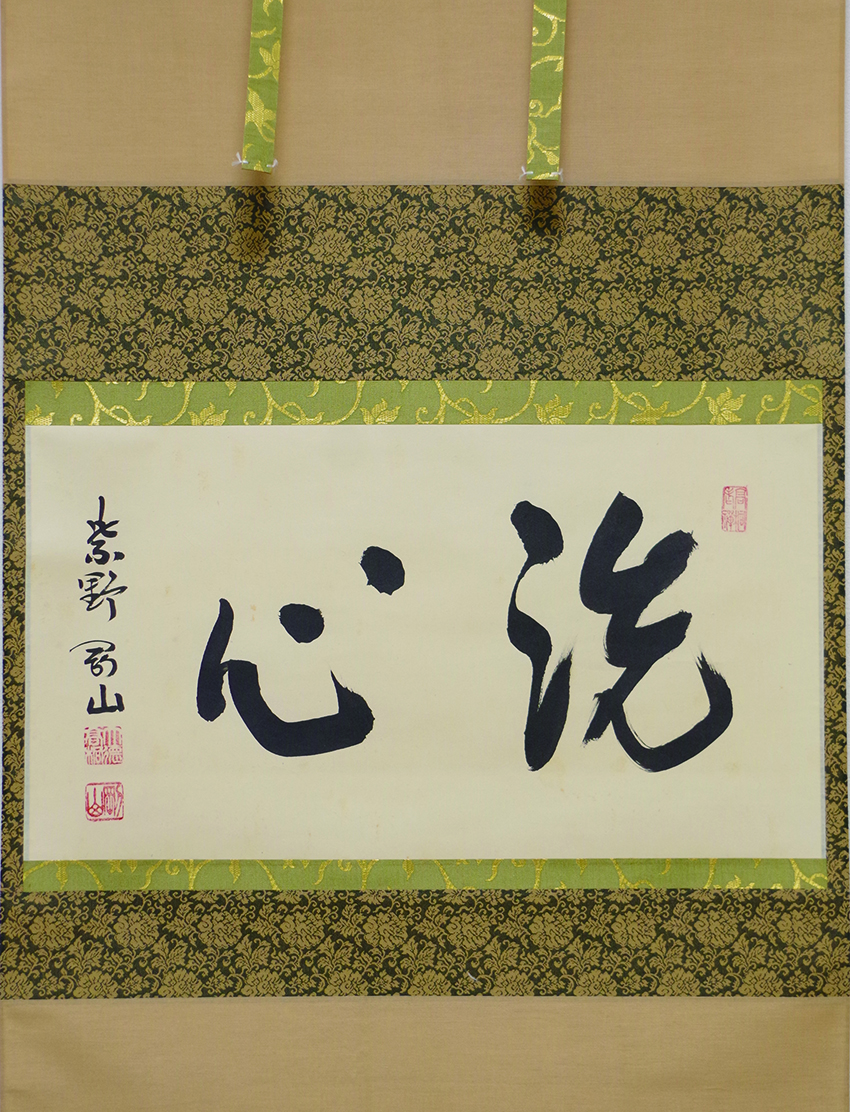 洗心
紫野 剛山